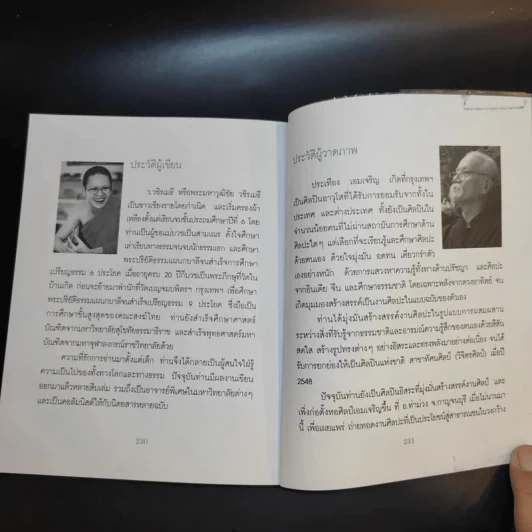 ประวัติผู้เขียน
ว.วชิรเมธี หรือพระมหาวุฒิชัย วชิรเมธี
เป็นชาวเชียงรายโดยกำเนิด และเริ่มครองผ้า
เหลืองตั้งแต่เรียนจบชั้นประถมศึกษาปีที่ ๖ โดย
ท่านเป็นผู้ขอแม่บวชเป็นสามเณร ตั้งใจศึกษา
เล่าเรียนทางธรรมจนจบนักธรรมเอก และศึกษา
พระปริยัติธรรมแผนกบาลีจนสำเร็จการศึกษา
เปรียญธรรม ๖ ประโยค เมื่ออายุครบ 20 ปีก็บวชเป็นพระภิกษุที่วัดใน
บ้านเกิด ก่อนจะย้ายมาพำนักที่วัดเบญจมบพิตรฯ กรุงเทพฯ เพื่อศึกษา
พระปริยัติธรรมแผนกบาลีจนสำเร็จเปรียญธรรม ๙ ประโยค ซึ่งถือเป็น
การศึกษาขั้นสูงสุดของคณะสงฆ์ไทย ท่านยังสำเร็จศึกษาศาสตร์
บัณฑิตจากมหาวิทยาลัยสุโขทัยธรรมาธิราช และสำเร็จพุทธศาสตร์มหา
บัณฑิตจากมหาจุฬาลงกรณ์ราชวิทยาลัยด้วย
ความที่รักการอ่านมาตั้งแต่เด็ก ท่านจึงได้กลายเป็นผู้สนใจใฝ่รู้
ความเป็นไปของทั้งทางโลกและทางธรรม ปัจจุบันท่านมีผลงานเขียน
ออกมาแล้วหลายสิบเล่ม รวมถึงเป็นอาจารย์พิเศษในมหาวิทยาลัยต่างๆ
และเป็นคอลัมนิสต์ให้กับนิตยสารหลายฉบับ
230
ประวัติผู้วาดภาพ
ประเทือง เอมเจริญ เกิดที่กรุงเทพฯ
เป็นศิลปินอาวุโสที่ได้รับการยอมรับจากทั้งใน
ประเทศ และต่างประเทศ ทั้งยังเป็นศิลปินใน
จำนวนน้อยคนที่ไม่ผ่านสถาบันการศึกษาด้าน
ศิลปะใดๆ แต่เลือกที่จะเรียนรู้และศึกษาศิลปะ
ด้วยตนเอง ด้วยใจมุ่งมั่น อดทน เคี่ยวกรำตัว
เองอย่างหนัก ด้วยการแสวงหาความรู้ทั้งทางด้านปรัชญา และศิลปะ
จากอินเดีย จีน และศึกษาจากธรรมชาติ โดยเฉพาะพลังจากดวงอาทิตย์ จน
เกิดมุมมองสร้างสรรค์เป็นงานศิลปะในแบบฉบับของตัวเอง
ท่านได้มุ่งมั่นสร้างสรรค์งานศิลปะในรูปแบบการผสมผสาน
ระหว่างสิ่งที่รับรู้จากธรรมชาติและอารมณ์ความรู้สึกของตนเองด้วยสีสัน
สดใส สร้างรูปทรงต่างๆ อย่างอิสระและทรงพลังมาอย่างต่อเนื่อง จนได้
รับการยกย่องให้เป็นศิลปินแห่งชาติ สาขาทัศนศิลป์ (วิจิตรศิลป์) เมื่อปี
2548
ปัจจุบันท่านยังเป็นศิลปินอิสระที่มุ่งมั่นสร้างสรรค์งานศิลป์ และ
เพิ่งก่อตั้งหอศิลป์เอมเจริญขึ้น ที่ อ.ท่าม่วง จ.กาญจนบุรี เมื่อไม่นานมา
นี้ เพื่อเผยแพร่ ถ่ายทอดงานศิลปะที่เป็นประโยชน์สู่สาธารณชนในวงกว้าง
231